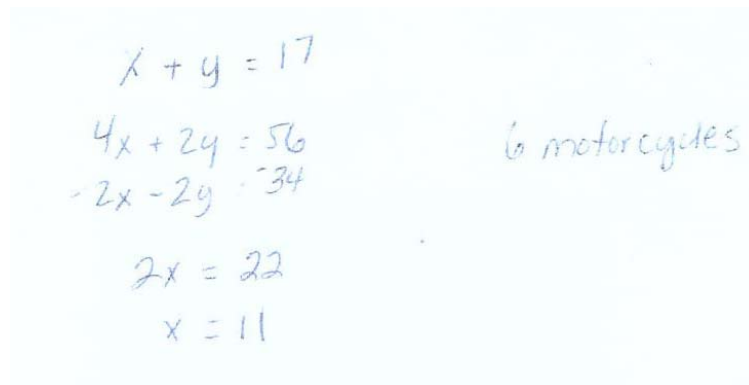 x + y = 17
4x + 2y = 56
-2x - 2y = -34
2x = 22
x = 11
6 motorcycles